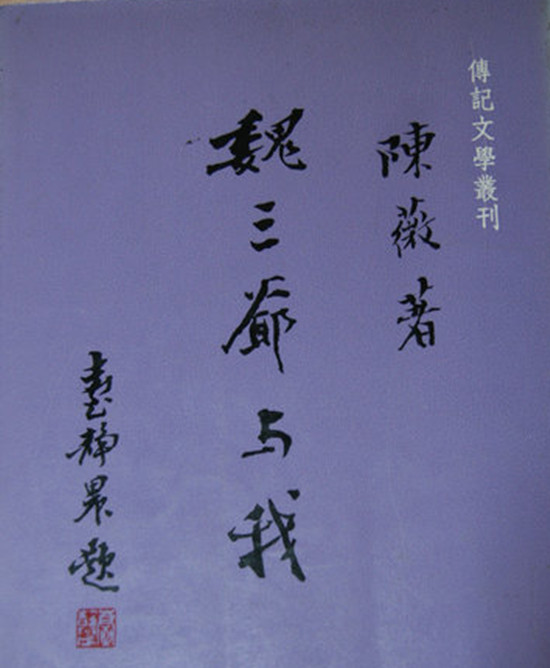 傳記文學叢刊
陳薇著
魏三爺与我
臺靜農題